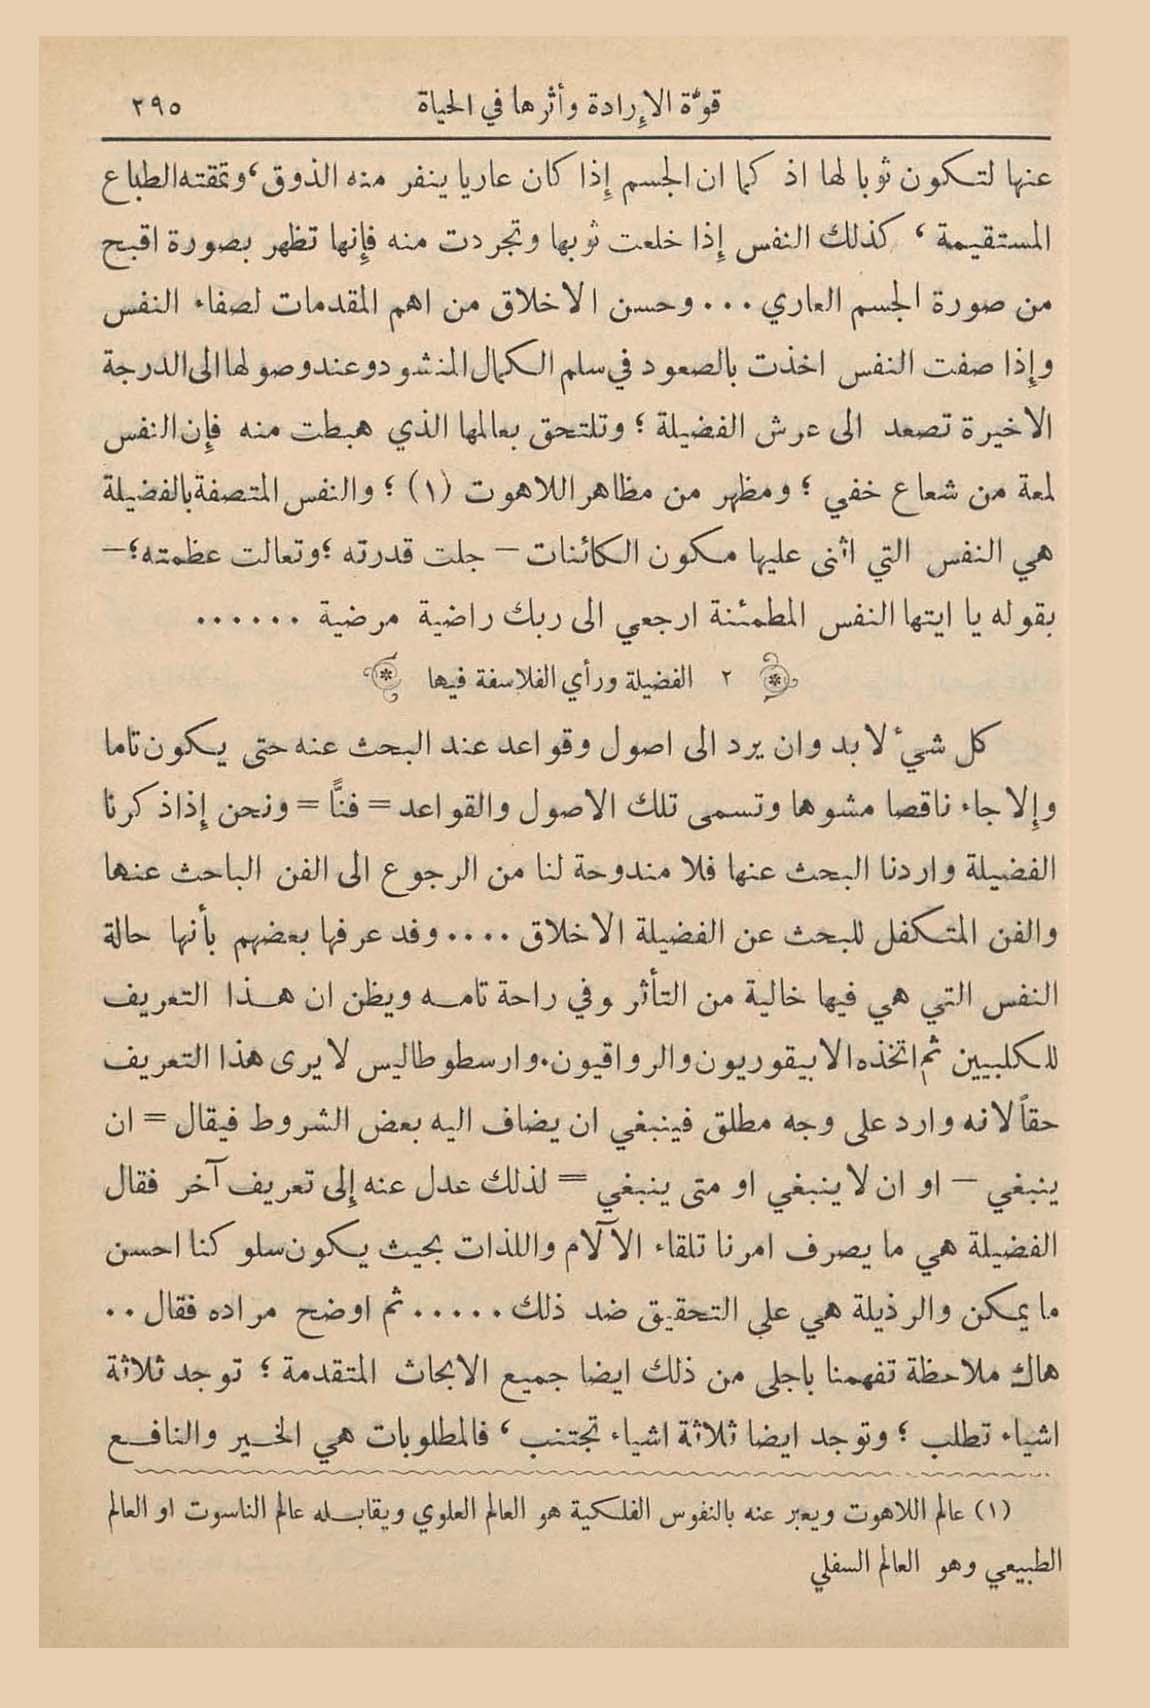 قوّة الإرادة وأثرها في الحياة ٢٩٥
عنها لتكون ثوبا لها اذ كما ان الجسم إذا كان عاريا ينفر منه الذوق، وتمقته الطباع
المستقيمة، كذلك النفس إذا خلعت ثوبها وتجردت منه فإنها تظهر بصورة اقبح
من صورة الجسم العاري ... وحسن الاخلاق من اهم المقدمات لصفاء النفس
وإذا صفت النفس اخذت بالصعود في سلم الكمال المنشود وعند وصولها الى الدرجة
الاخيرة تصعد الى عرش الفضيلة ؛ وتلتحق بعالمها الذي هبطت منه فإن النفس
لمعة من شعاع خفي ؛ ومظهر من مظاهر اللاهوت (١) ؛ والنفس المتصفة بالفضيلة
هي النفس التي اثنى عليها مكون الكائنات – جلت قدرته ؛ وتعالت عظمته ؛ –
بقوله يا ايتها النفس المطمئنة ارجعي الى ربك راضية مرضية ......
٢ الفضيلة ورأي الفلاسفة فيها
كل شيء لا بد وان يرد الى اصول وقواعد عند البحث عنه حتى يكون تاما
وإلا جاء ناقصا مشوها وتسمى تلك الاصول والقواعد = فنًّا = ونحن إذا ذكرنا
الفضيلة واردنا البحث عنها فلا مندوحة لنا من الرجوع الى الفن الباحث عنها
والفن المتكفل للبحث عن الفضيلة الاخلاق .... وقد عرفها بعضهم بأنها حالة
النفس التي هي فيها خالية من التأثر وفي راحة تامه ويظن ان هذا التعريف
للكلبيين ثم اتخذه الابيقوريون والرواقيون. وارسطوطاليس لا يرى هذا التعريف
حقاً لانه وارد على وجه مطلق فينبغي ان يضاف اليه بعض الشروط فيقال = ان
ينبغي – او ان لا ينبغي او متى ينبغي = لذلك عدل عنه إلى تعريف آخر فقال
الفضيلة هي ما يصرف امرنا تلقاء الآلام واللذات بحيث يكون سلوكنا احسن
ما يمكن والرذيلة هي على التحقيق ضد ذلك ..... ثم اوضح مراده فقال ..
هاك ملاحظة تفهمنا باجلى من ذلك ايضا جميع الابحاث المتقدمة ؛ توجد ثلاثة
اشياء تطلب ؛ وتوجد ايضا ثلاثة اشياء تجتنب، فالمطلوبات هي الخير والنافع
(١) عالم اللاهوت ويعبر عنه بالنفوس الفلكية هو العالم العلوي ويقابله عالم الناسوت او العالم
الطبيعي وهو العالم السفلي